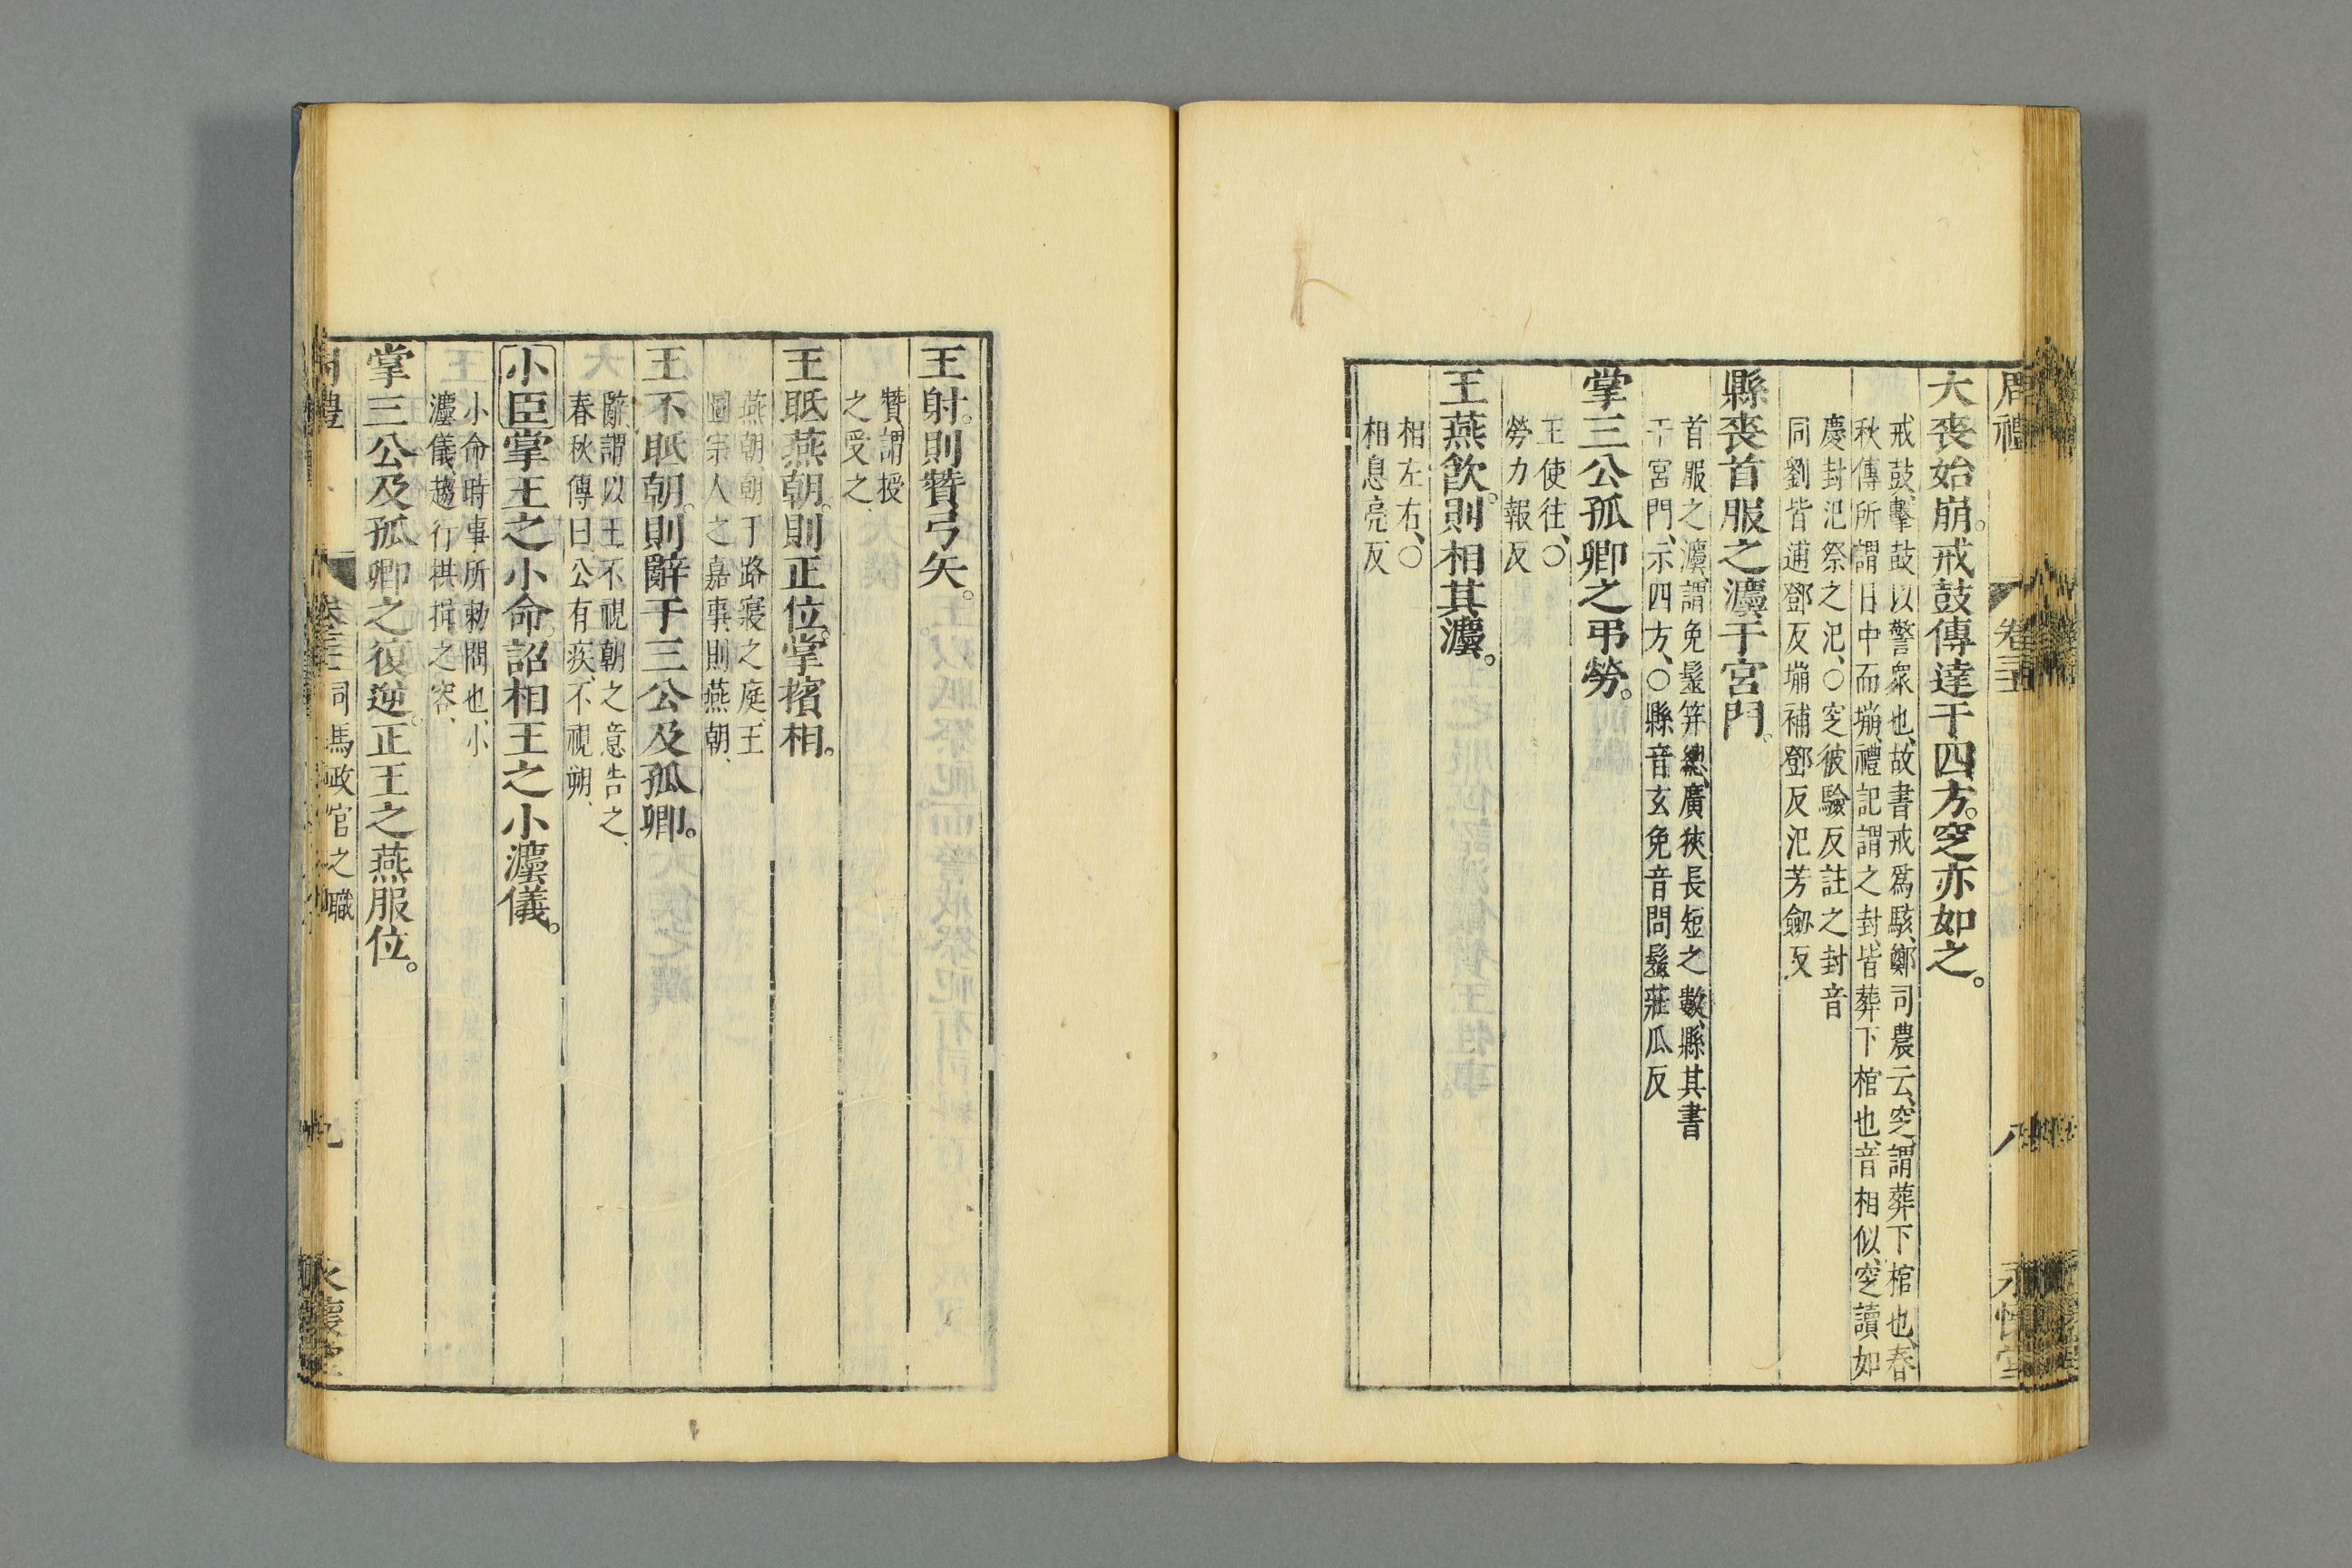 周禮 卷三十一 八 永懷堂
大喪始崩。戒鼓傳達于四方。窆亦如之。
戒鼓、擊鼓以警衆也、故書戒爲駭、鄭司農云、窆、謂葬下棺也、春
秋傳所謂日中而塴、禮記謂之封、皆葬下棺也、音相似、窆讀如
慶封汜祭之汜、○窆彼驗反註之封音
同劉皆逋鄧反塴補鄧反汜芳劔反
縣喪首服之灋于宮門。
首服之灋、謂免髽笄總、廣狹長短之數、縣其書
于宮門、示四方、○縣音玄免音問髽莊瓜反
掌三公孤卿之弔勞。
王使往、○
勞力報反
王燕飲。則相其灋。
相左右、○
相息亮反
王射。則贊弓矢。
贊謂授
之受之、
王眡燕朝。則正位。掌擯相。
燕朝、朝于路寢之庭、王
圖宗人之嘉事、則燕朝、
王不眡朝。則辭于三公及孤卿。
辭謂以王不視朝之意告之、
春秋傳曰、公有疾、不視朔、
小臣掌王之小命。詔相王之小灋儀。
小命、時事所勑問也、小
灋儀、趨行拱揖之容、
掌三公及孤卿之復逆。正王之燕服位。
周禮 卷三十一 司馬政官之職 九 永懷堂